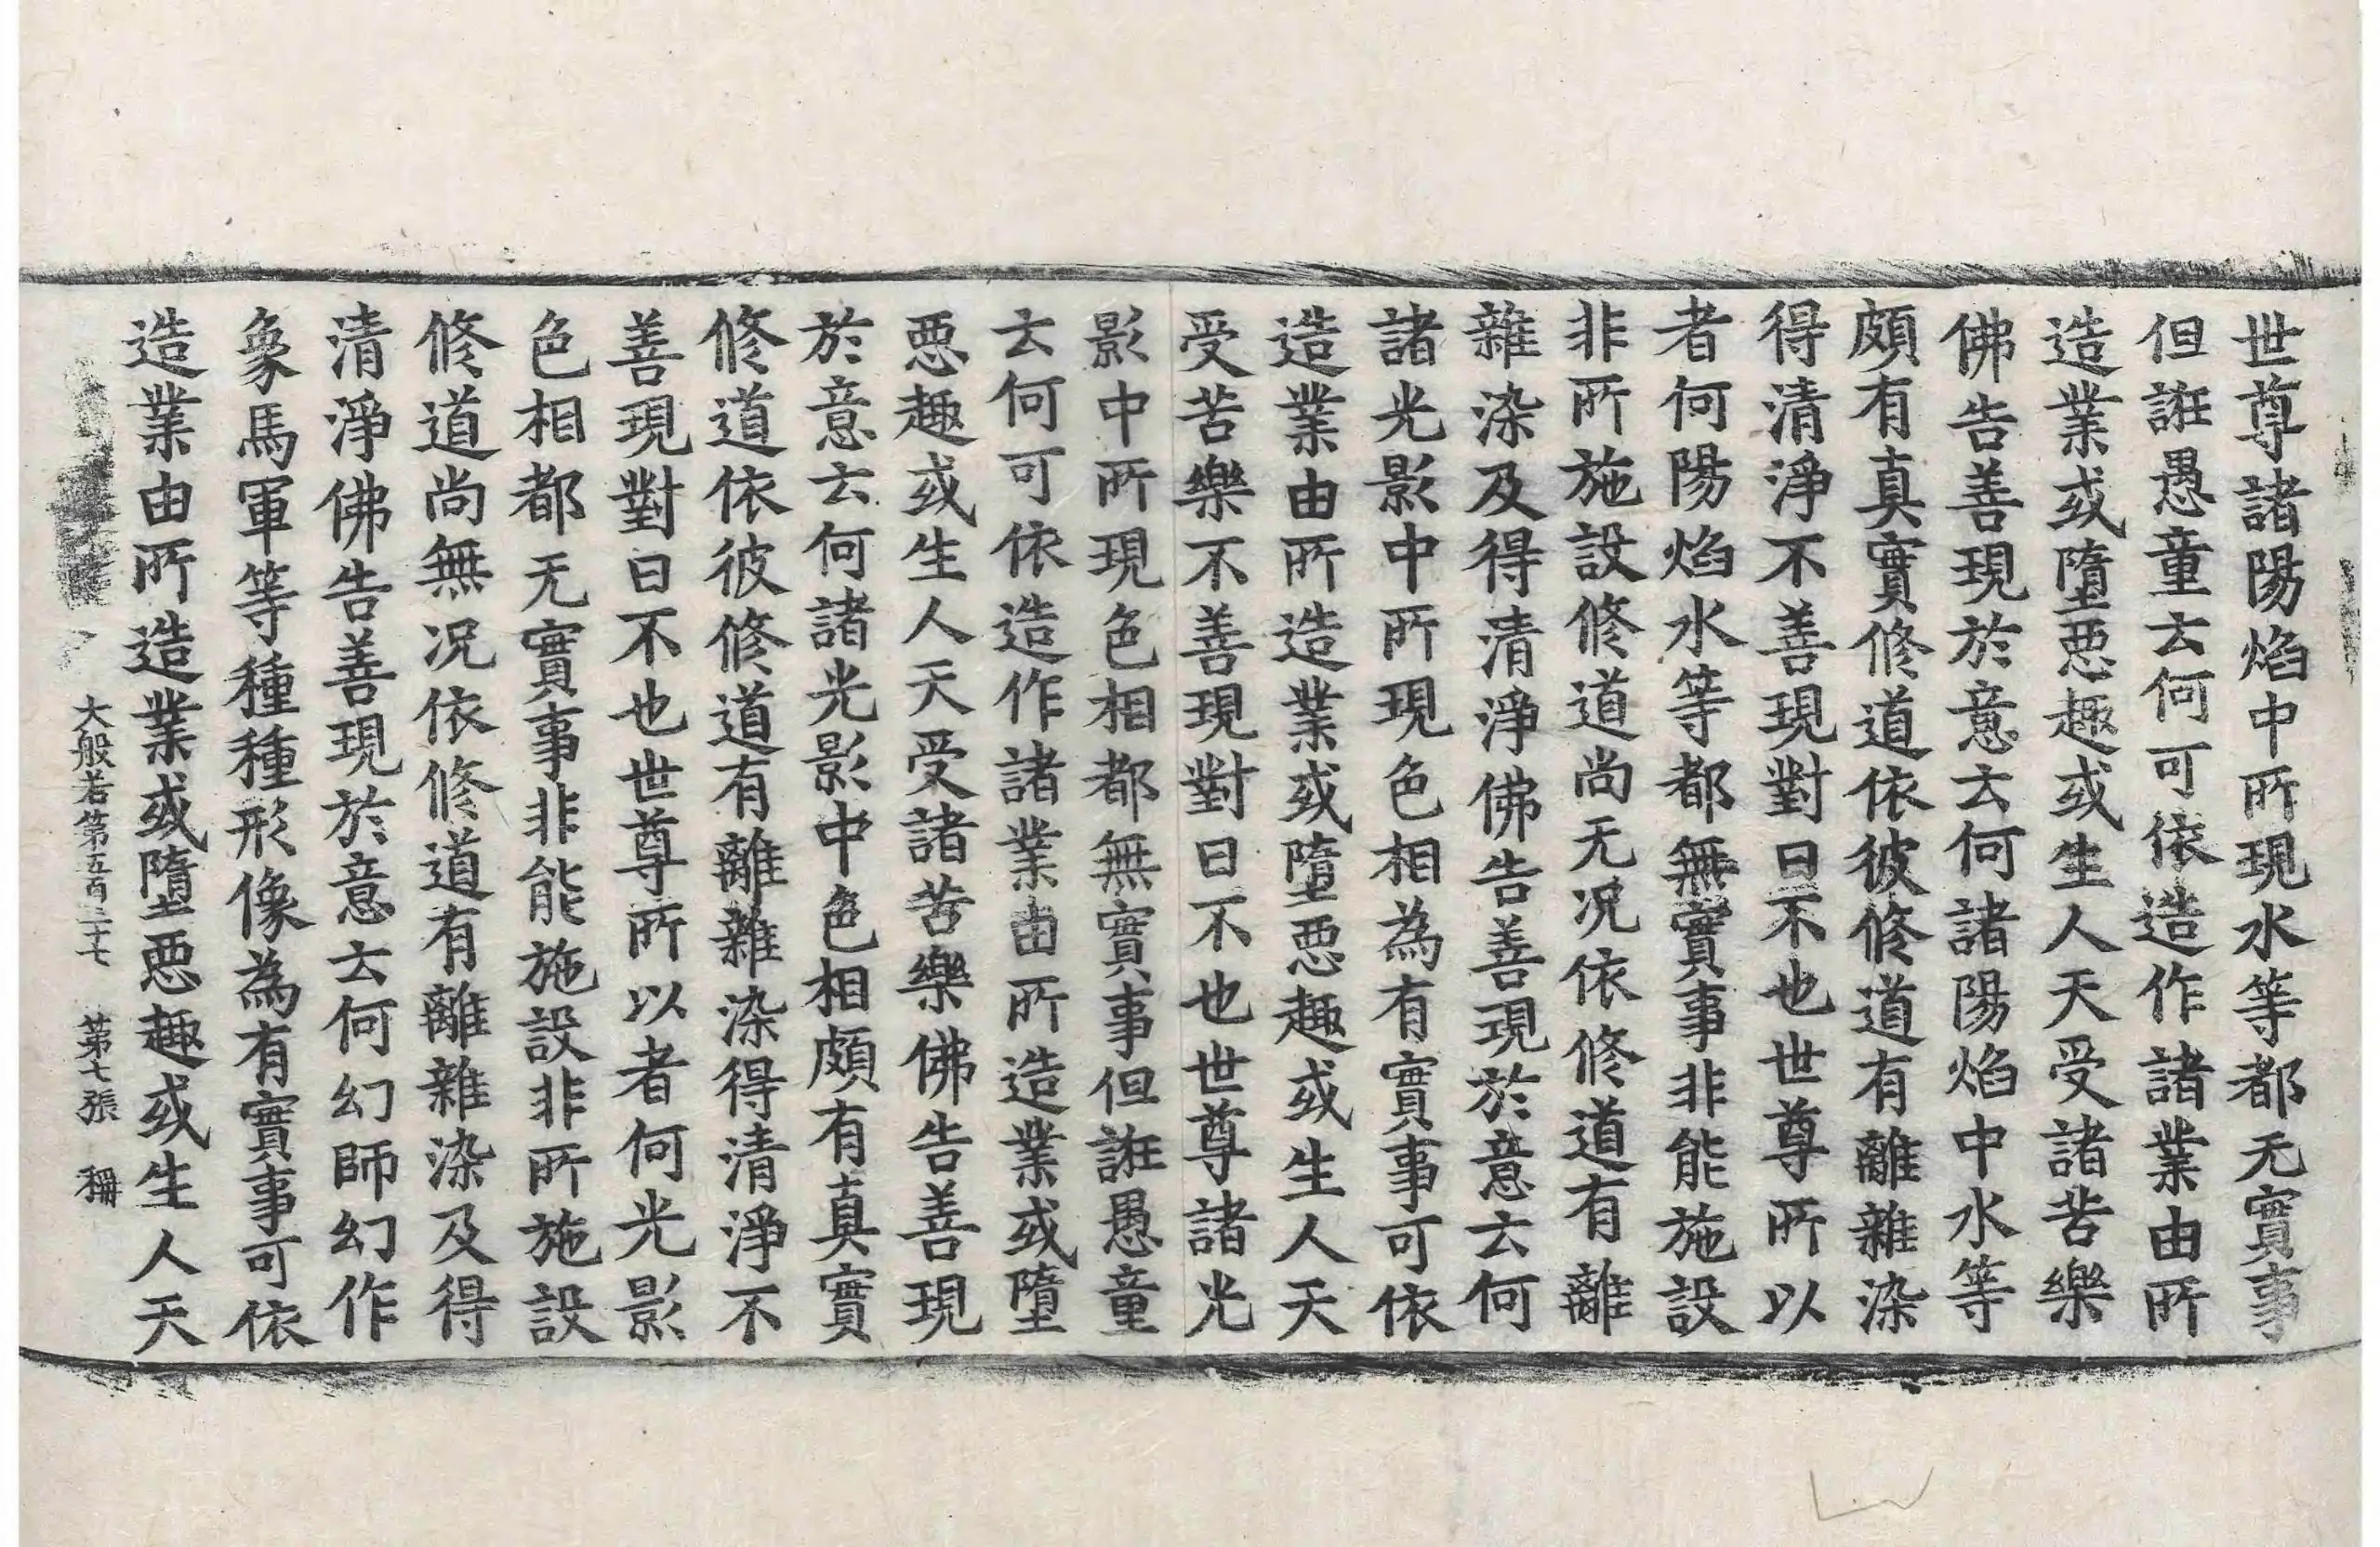 世尊諸陽焰中所現水等都无實事
但誑愚童云何可依造作諸業由所
造業或墮惡趣或生人天受諸苦樂
佛告善現於意云何諸陽焰中水等
頗有真實修道依彼修道有離雜染
得清淨不善現對曰不也世尊所以
者何陽焰水等都無實事非能施設
非所施設修道尚无况依修道有離
雜染及得清淨佛告善現於意云何
諸光影中所現色相為有實事可依
造業由所造業或墮惡趣或生人天
受苦樂不善現對曰不也世尊諸光
影中所現色相都無實事但誑愚童
云何可依造作諸業由所造業或墮
惡趣或生人天受諸苦樂佛告善現
於意云何諸光影中色相頗有真實
修道依彼修道有離雜染得清淨不
善現對曰不也世尊所以者何光影
色相都无實事非能施設非所施設
修道尚無况依修道有離雜染及得
清淨佛告善現於意云何幻師幻作
象馬軍等種種形像為有實事可依
造業由所造業或墮惡趣或生人天
大般若第五百二十七 第七張 稱